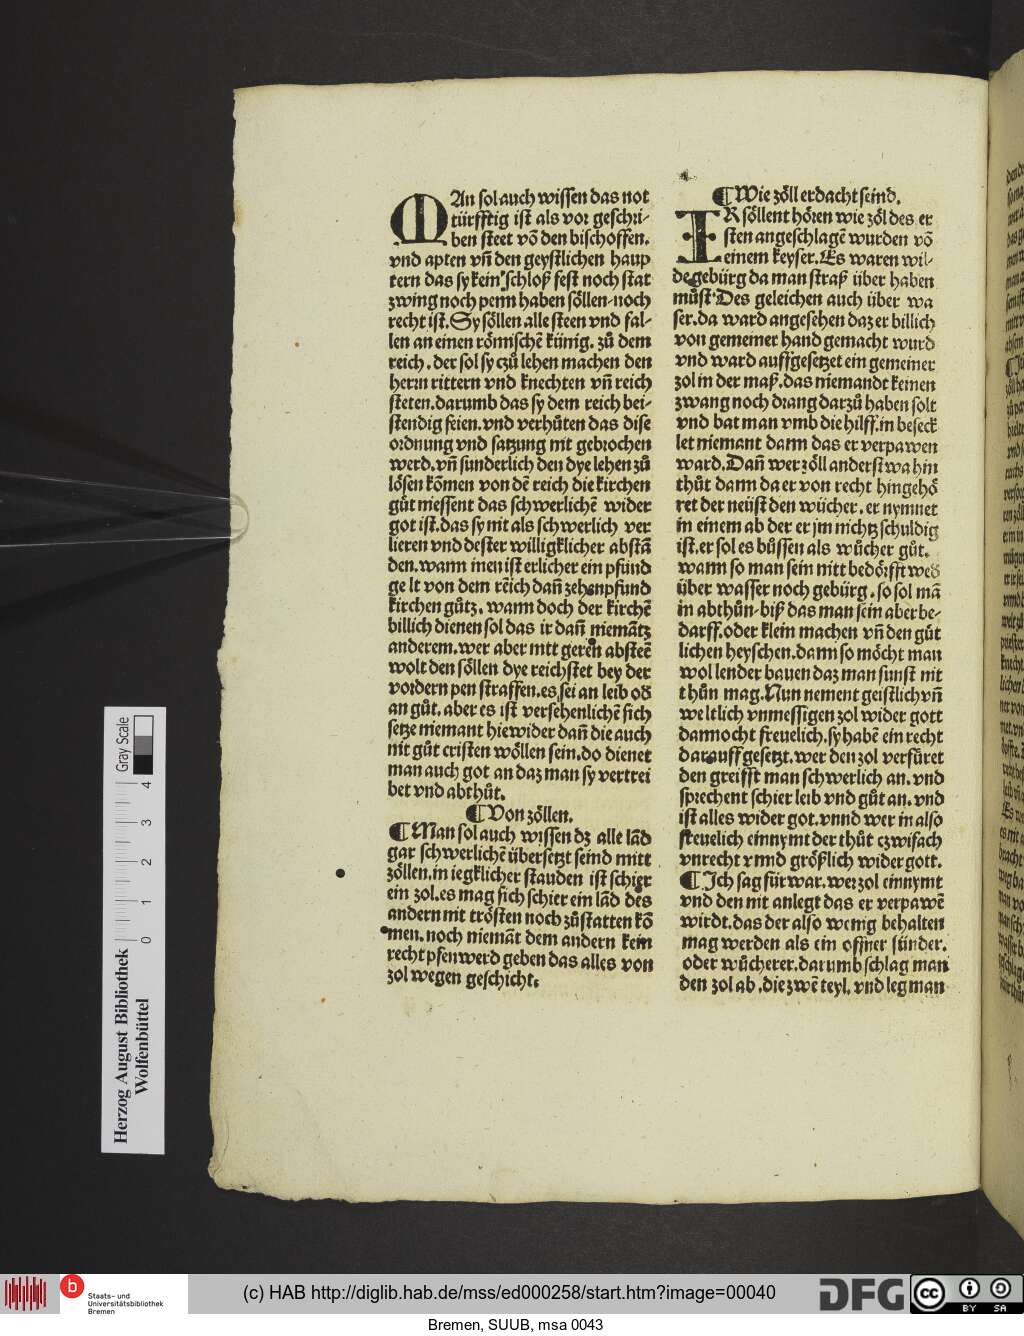 MAn sol auch wissen das not
türfftig ist als vor geschri-
ben steet võ den bischoffen.
vnd apten vñ den geystlichen haup
tern das sy kein schloß fest noch stat
zwing noch penn haben söllen-noch
recht ist. Sy söllen alle steen vnd fal-
len an einen römischẽ künig. zů dem
reich. der sol sy czů lehen machen den
herrn rittern vnd knechten vñ reich
steten. darumb das sy dem reich bei-
stendig seien. vnd verhüten das dise
ordnung vnd satzung nit gebrochen
werd. vñ sunderlich den dye lehen zů
lösen kõmen von dẽ reich die kirchen
gůt niessent das schwerlichẽ wider
got ist. das sy nit als schwerlich ver
lieren vnd dester willigklicher abstã
den. wann inen ist erlicher ein pfund
ge lt von dem reich dañ zehenpfund
kirchen gůtz. wann doch der kirchẽ
billich dienen sol das ir dañ niemãtz
anderem. wer aber nitt geren absteẽ
wolt den söllen dye reichstet bey der
vordern pen straffen. es sei an leib od
an gůt. aber es ist versehenlichẽ sich
setze niemant hiewider dañ die auch
nit gůt cristen wöllen sein. do dienet
man auch got an daz man sy vertrei
bet vnd abthůt.
¶ Von zöllen.
¶ Man sol auch wissen dz alle lãd
gar schwerlichẽ übersetzt seind mitt
zöllen. in iegklicher stauden ist schier
ein zol. es mag sich schier ein lãd des
andern nit trösten noch zůstatten kõ
men. noch niemãt dem andern kein
recht pfenwerd geben das alles von
zol wegen geschicht.
¶ Wie zöll erdacht seind.
IR söllent hören wie zöl des er
sten angeschlagẽ wurden võ
einem keyser. Es waren wil-
de gebürg da man straß über haben
můst. Des geleichen auch über wa
ser. da ward angesehen daz er billich
von gemeiner hand gemacht wurd
vnd ward auffgesetzet ein gemeiner
zol in der maß. das niemandt keinen
zwang noch drang darzů haben solt
vnd bat man vmb die hilff. in beseck
let niemant dann das er verpawen
ward. Dañ wer zöll anderst wa hin
thůt dann da er von recht hingehö
ret der neüst den wůcher. er nymnet
in einem ab der er jm nichtz schuldig
ist. er sol es büssen als wůcher gůt.
wann so man sein nitt bedörfft weg
über wasser noch gebürg. so sol mã
in abthůn-biß das man sein aber be-
darff. oder klein machen vñ den gůt
lichen heyschen. dann so möcht man
wol lender bauen daz man sunst nit
thůn mag. Nun nement geistlich vñ
weltlich vnmessigen zol wider gott
dannocht freuelich. sy habẽ ein recht
darauff gesetzt. wer den zol verfüret
den greifft man schwerlich an. vnd
sprechent schier leib vnd gůt an. vnd
ist alles wider got. vnnd wer in also
freuelich einnymt der thůt czwifach
vnrecht vnnd größlich wider gott.
¶ Ich sag für war. wer zol einnymt
vnd den nit anlegt das er verpawẽ
wirdt. das der also wenig behalten
mag werden als ein offner sünder.
oder wůcherer. darumb schlag man
den zol ab. die zwẽ teyl. vnd leg man
Herzog August Bibliothek
Wolfenbüttel
0 1 2 3 4
Gray Scale
Staats- und
Universitätsbibliothek
Bremen
(c) HAB http://diglib.hab.de/mss/ed000258/start.htm?image=00040
DFG
cc BY SA
Bremen, SUUB, msa 0043